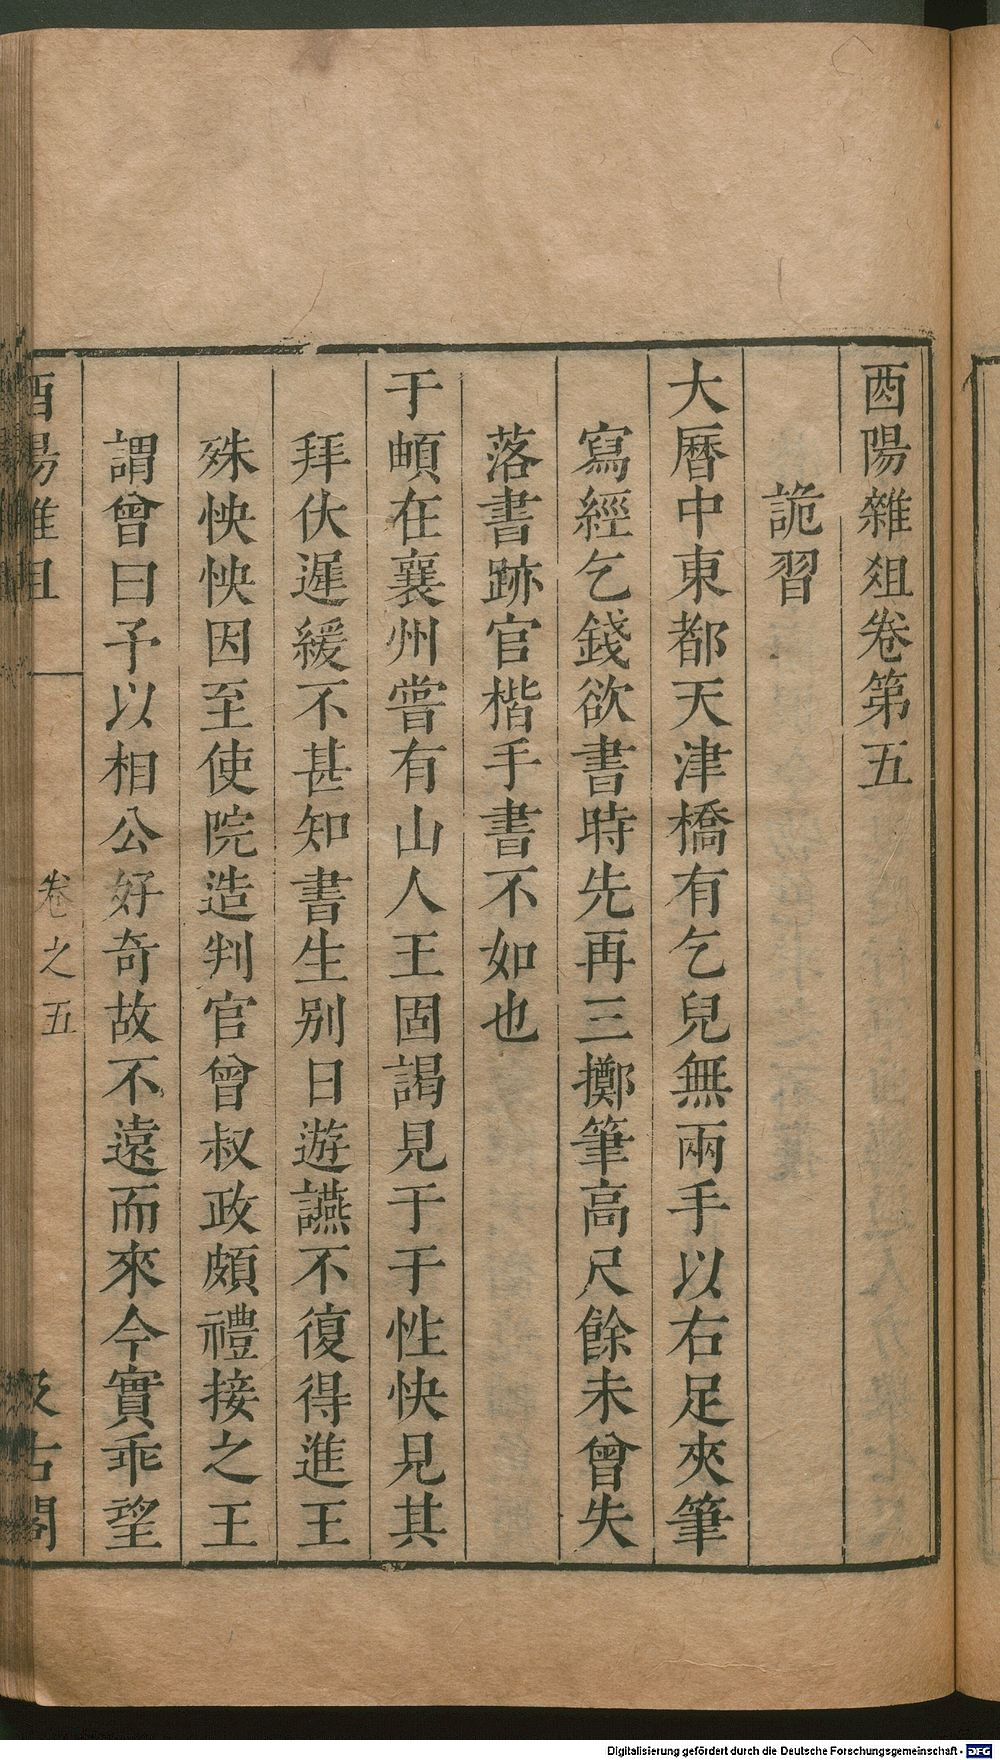 酉陽雜俎卷第五
詭習
大曆中東都天津橋有乞兒無兩手以右足夾筆
寫經乞錢欲書時先再三擲筆高尺餘未曾失
落書跡官楷手書不如也
于頔在襄州嘗有山人王固謁見于于性快見其
拜伏遲緩不甚知書生別日遊讌不復得進王
殊怏怏因至使院造判官曾叔政頗禮接之王
謂曾曰予以相公好奇故不遠而來今實乖望
酉陽雜俎
卷之五
汲古閣
Digitalisierung gefördert durch die Deutsche Forschungsgemeinschaft - DFG